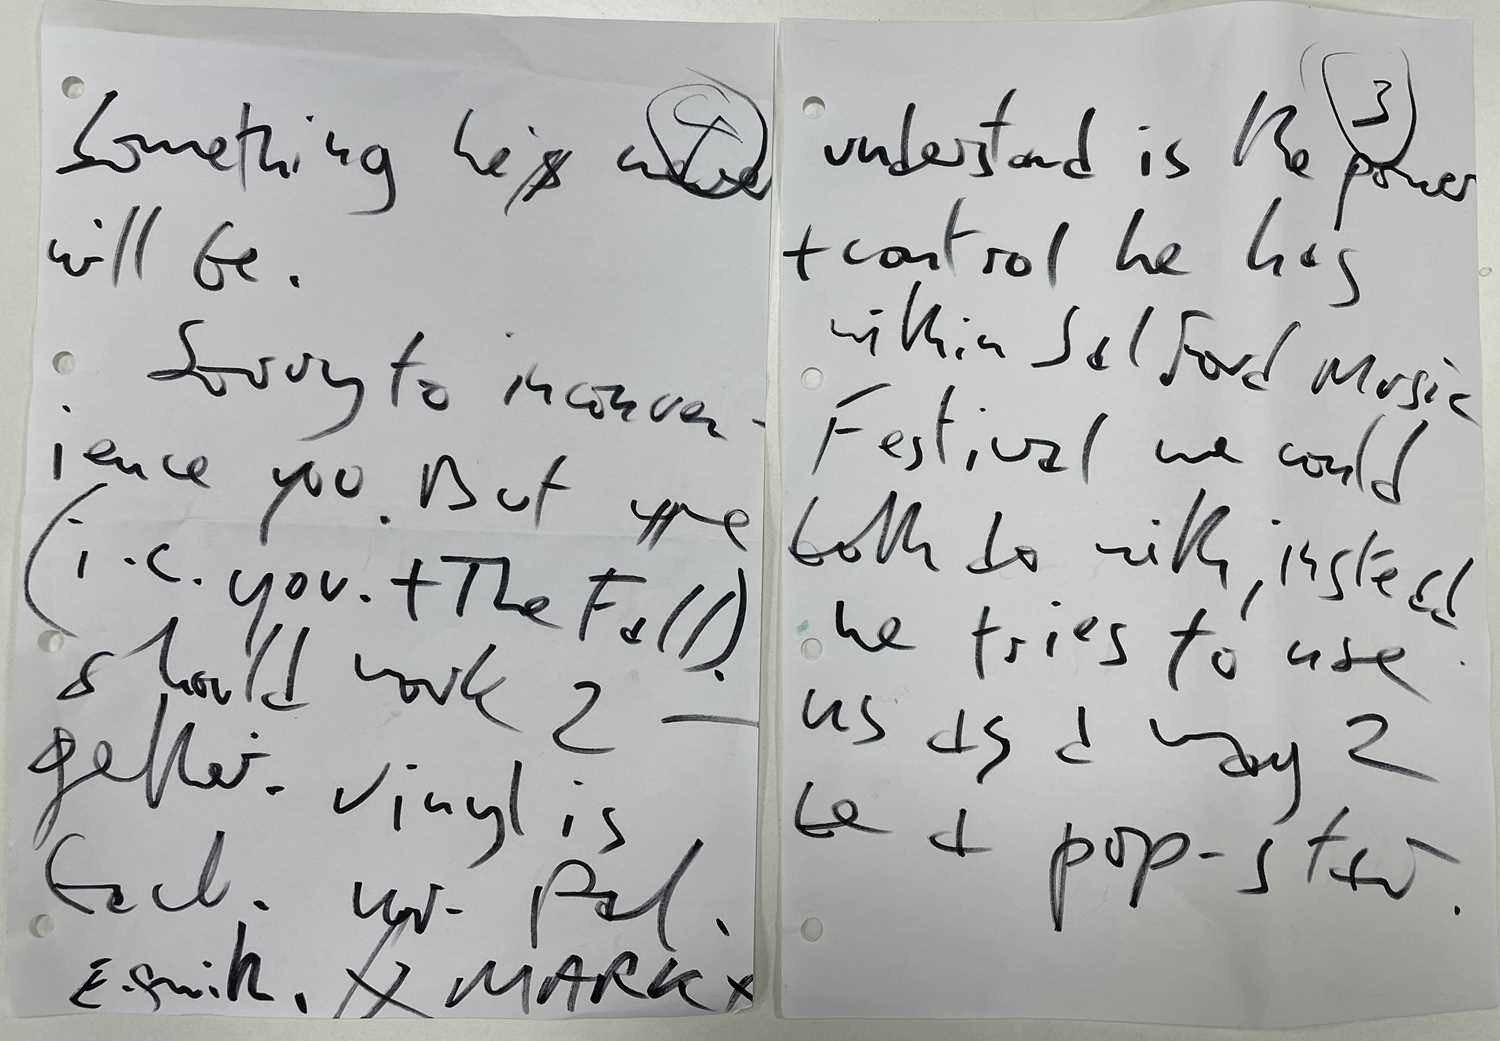 4
Something he's never
will be.
Sorry to inconven-
ience you. But we
(i.e. you. + The Fall).
should work 2 —
gether. Vinyl is
back. yor. Pal.
E. Smith. XX MARK x
3
understand is the power
+ control he has
within Salford Music
Festival we could
both do with, instead
he tries to use
us as a way 2
be a pop-star.